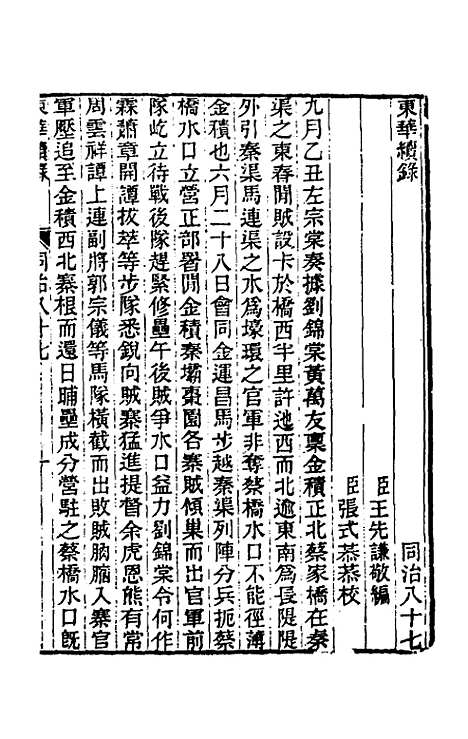 東華續錄 同治八十七
臣王先謙敬編
臣張式恭恭校
九月乙丑左宗棠奏據劉錦棠黃萬友稟金積正北蔡家橋在秦
渠之東春閒賊設卡於橋西半里許迤西而北逾東南為長隄隄
外引秦渠馬連渠之水為壕環之官軍非奪蔡橋水口不能徑薄
金積也六月二十八日會同金運昌馬步越秦渠列陣分兵扼蔡
橋水口立營正部署閒金積秦壩棗園各寨賊傾巢而出官軍前
隊屹立待戰後隊趕緊修壘午後賊爭水口益力劉錦棠令何作
霖蕭章開譚拔萃等步隊悉銳向賊寨猛進提督余虎恩熊有常
周雲祥譚上連副將郭宗儀等馬隊橫截而出敗賊胸腦入寨官
軍壓追至金積西北寨根而還日晡壘成分營駐之蔡橋水口旣
東華續錄 同治八十七 一